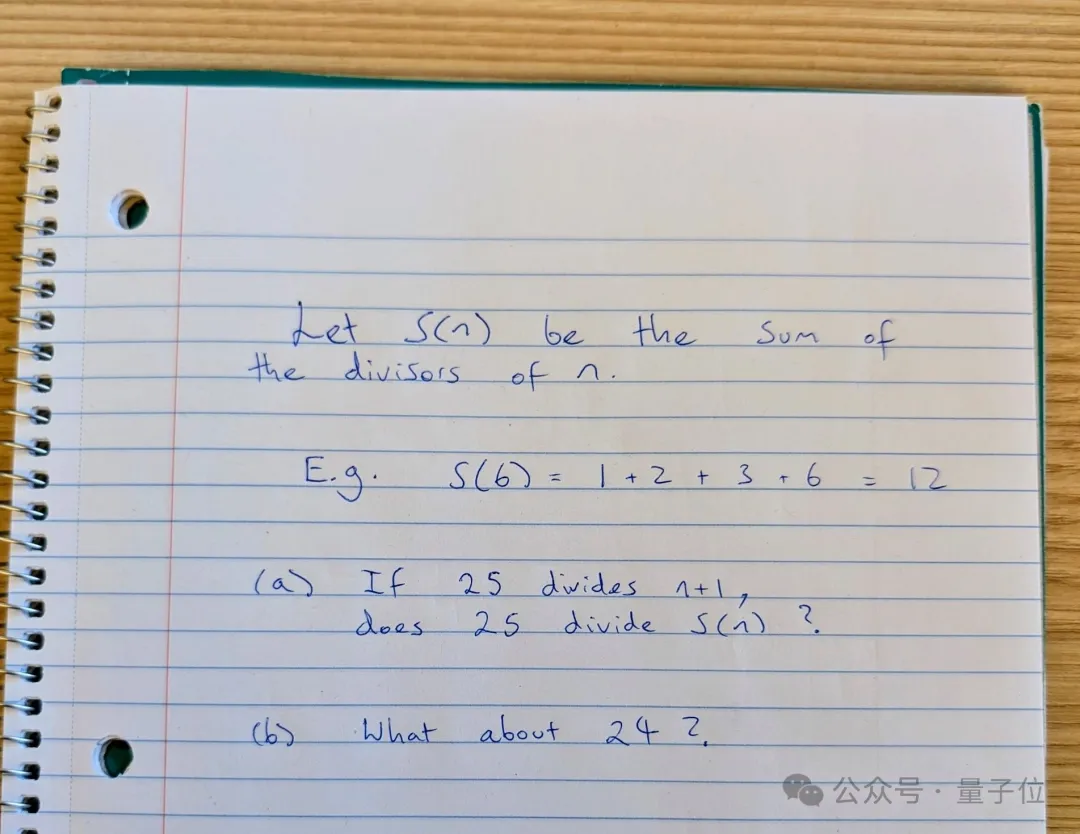 Let S(n) be the sum of
the divisors of n.
E.g. S(6) = 1 + 2 + 3 + 6 = 12
(a) If 25 divides n+1,
does 25 divide S(n) ?
(b) What about 24 ?
公众号 · 量子位